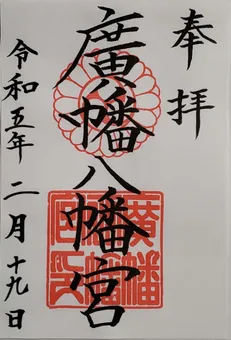 奉拝
廣幡八幡宮
令和五年二月十九日